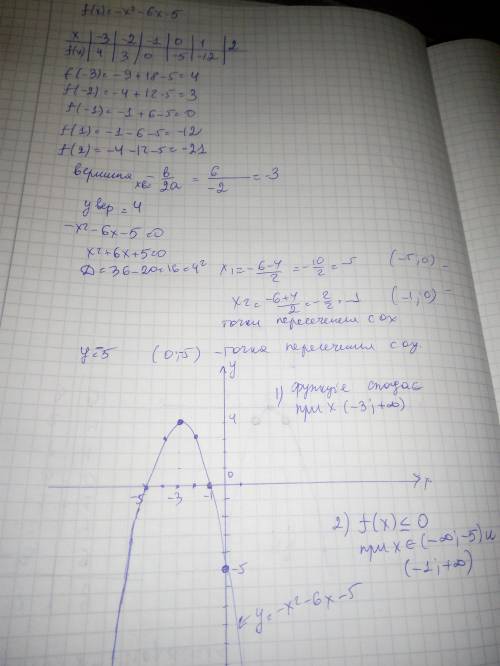 f(x) = -x² - 6x - 5
x | -3 | -2 | -1 | 0 | 1 | 2
f(x) | 4 | 3 | 0 | -5 | -12 |
f(-3) = -9 + 18 - 5 = 4
f(-2) = -4 + 12 - 5 = 3
f(-1) = -1 + 6 - 5 = 0
f(1) = -1 - 6 - 5 = -12
f(2) = -4 - 12 - 5 = -21
вершина xв = -в/2a = 6/-2 = -3
y вер = 4
-x² - 6x - 5 = 0
x² + 6x + 5 = 0
D = 36 - 20 = 16 = 4² x₁ = -6-4/2 = -10/2 = -5 (-5; 0) -
x₂ = -6+4/2 = -2/2 = -1 (-1; 0) -
точки пересечения с ox
y = -5 (0; -5) - точка пересечения с oy.
y
1) функціє спадає
при x (-3; +∞)
4
0
-5 -3 -1
2) f(x) ≤ 0
при x ∈ (-∞; -5) и
(-1; +∞)
-5
y = -x² - 6x - 5